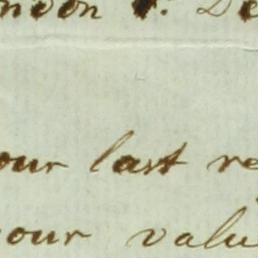 ondon 1. De
our last re
your valu